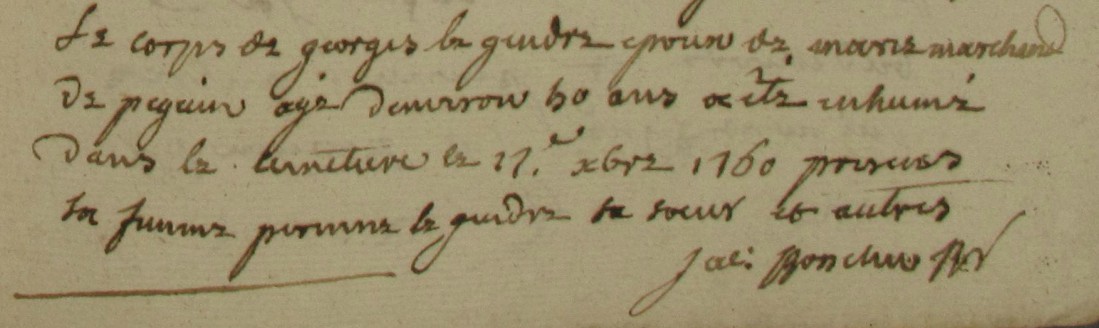 Le corps de georges le guidre epoux de marie marchand
de pegaiw agé denviron 50 ans a eté inhumé
dans le cimeture le 17.e xbre 1760 presens
sa fumme perinne le guidre sa soeur et autres